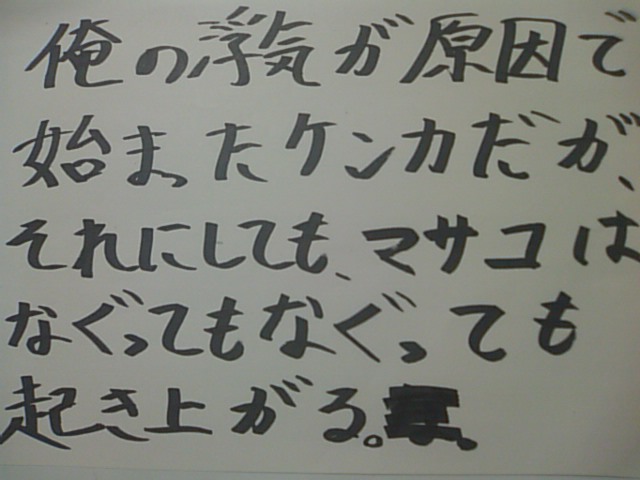 俺の浮気が原因で
始まったケンカだが、
それにしても、マサコは
なぐってもなぐっても
起き上がる。